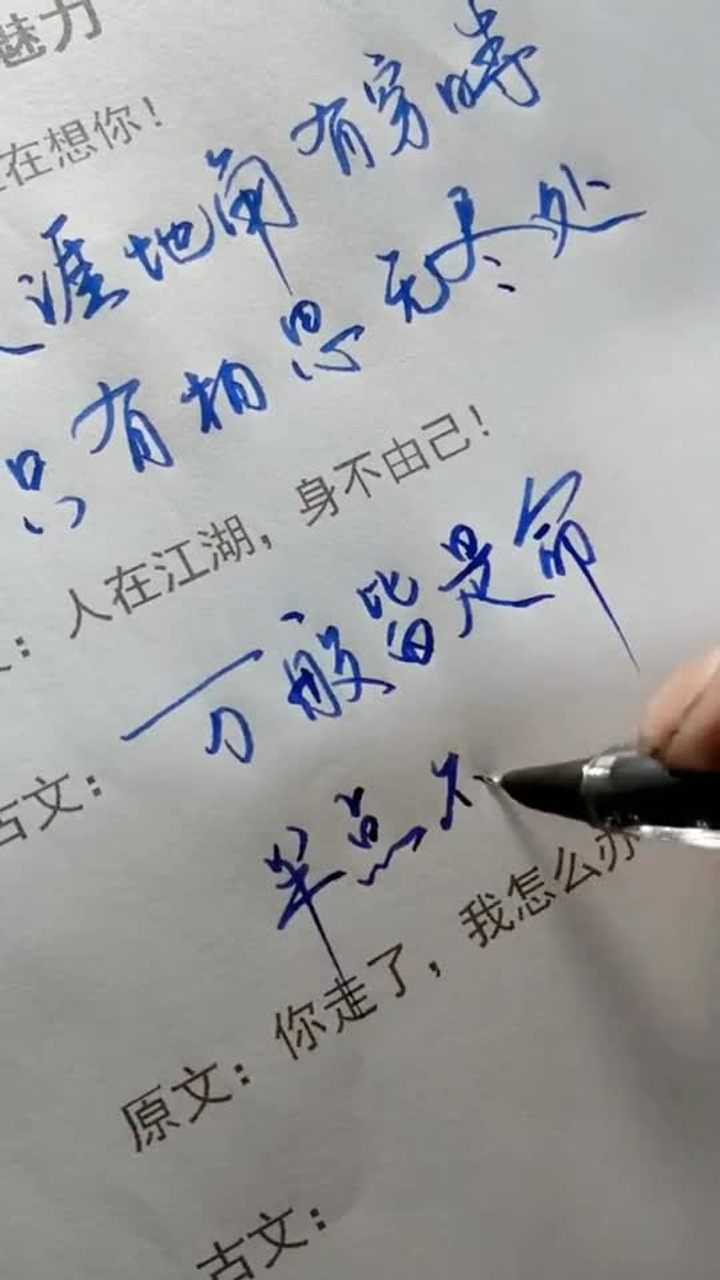 魅力
在想你！
涯地角有穷时
只有相思无尽处
：人在江湖，身不由己！
古文：
万般皆是命
半点不
原文：你走了，我怎么办
古文：